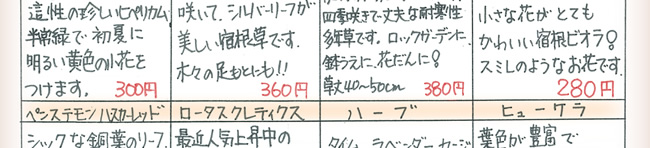 這性の珍しいヒペリカム。
半常緑で初夏に
明るい黄色の小花を
つけます。 300円
咲いて、シルバーリーフが
美しい宿根草です。
木々の足もとにも!!
360円
四季咲きで丈夫な耐寒性
多年草です。ロックガーデンに、
鉢うえに、花だんに!
草丈40~50cm 380円
小さな花がとても
かわいい宿根ビオラ!
スミレのようなお花です。
280円
ペンステモン ハスカーレッド
ロータスクレティクス
ハーブ
ヒューケラ
シックな銅葉のリーフ。
最近人気上昇中の
タイム ラベンダー セージ
葉色が豊富で